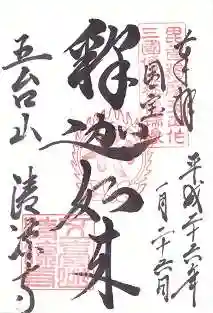 奉拝
平成二十六年
一月二十六日
国宝
釋迦如来
五台山
清凉寺